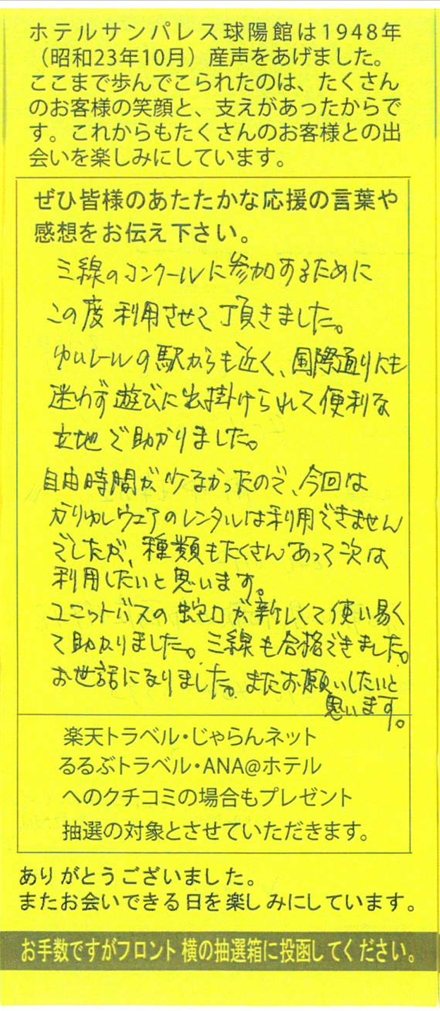 ホテルサンパレス球陽館は1948年
（昭和23年10月）産声をあげました。
ここまで歩んでこられたのは、たくさん
のお客様の笑顔と、支えがあったからで
す。これからもたくさんのお客様との出
会いを楽しみにしています。
ぜひ皆様のあたたかな応援の言葉や
感想をお伝え下さい。
三線のコンクールに参加するために
この度利用させて頂きました。
ゆいレールの駅からも近く、国際通りにも
迷わず遊びに出掛けられて便利な
立地で助かりました。
自由時間が少なかったので、今回は
かりゆしウェアのレンタルは利用できません
でしたが、種類もたくさんあって次は
利用したいと思います。
ユニットバスの蛇口が新しくて使い易く
て助かりました。三線も合格できました。
お世話になりました。またお願いしたいと
思います。
楽天トラベル・じゃらんネット
るるぶトラベル・ANA@ホテル
へのクチコミの場合もプレゼント
抽選の対象とさせていただきます。
ありがとうございました。
またお会いできる日を楽しみにしています。
お手数ですがフロント横の抽選箱に投函してください。